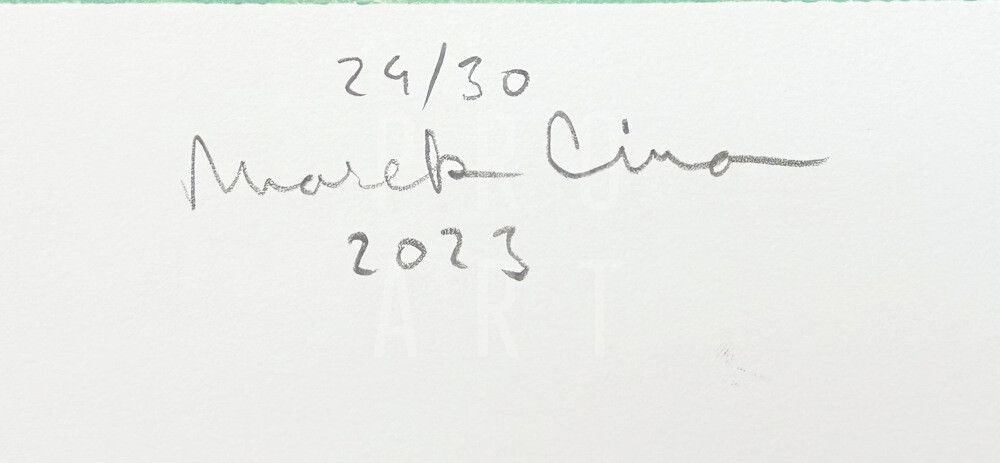 29/30
Marek Cina
2023
PRO
ART